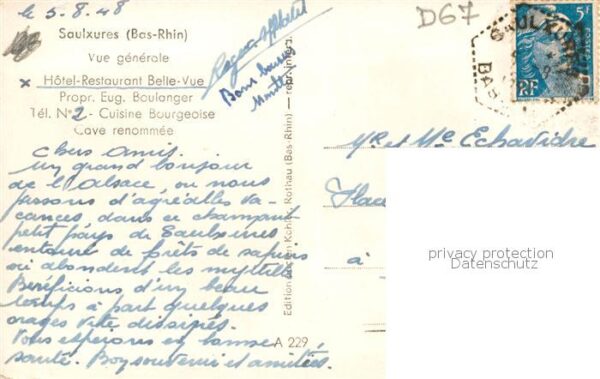 le 5.8.48
Saulxures (Bas-Rhin)
Vue générale
x Hôtel-Restaurant Belle-Vue
Propr. Eug. Boulanger
Tél. No 2 - Cuisine Bourgeoise
Cave renommée
Chers Amis.
Un grand bonjour
de l'Alsace, ou nous
passons d'agréables va-
cances dans ce charmant
petit pays de Saulxures
entouré de forêts de sapins
où abondent les myrtilles
Bénéficions d'un beau
temps à part quelques
orages vite dissipés.
Vous espérons en bonne
santé. Bon souvenir et amitiés.
Bons baisers
Edition Kohler, Rothau (Bas-Rhin) — repr. interd.
A 229
D67
SAULXURES
BAS
5F
RF
Mr et Me Echavidre
Place
à
privacy protection
Datenschutz